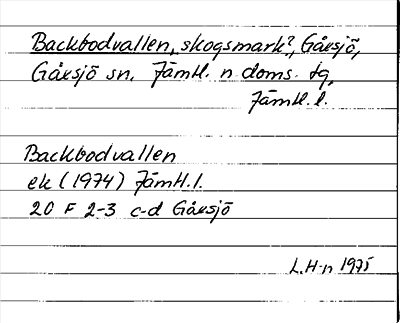 Backbodvallen, skogsmark?, Gåxsjö,
Gåxsjö sn. Jämtl. n doms. tg,
Jämtl. l.
Backbodvallen
ek (1974) Jämtl. l.
20 F 2-3 c-d Gåxsjö
L. H-n 1975